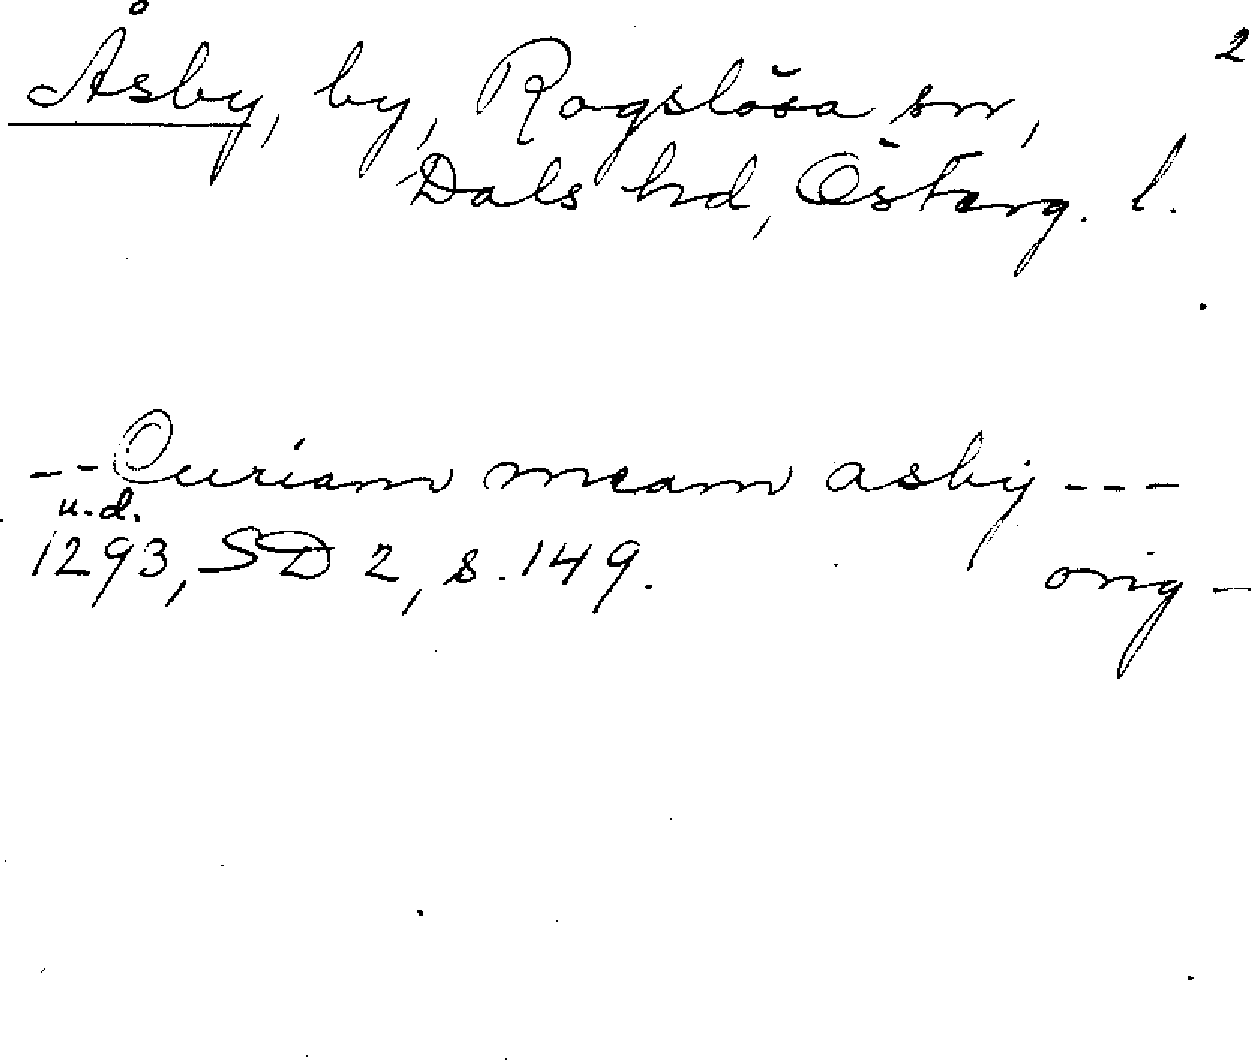 2
Åsby, by, Rogslösa sn,
Dals hd, Österg. l.
-- Curiam meam asby ---
u.d.
1293, SD 2, s. 149.
orig -